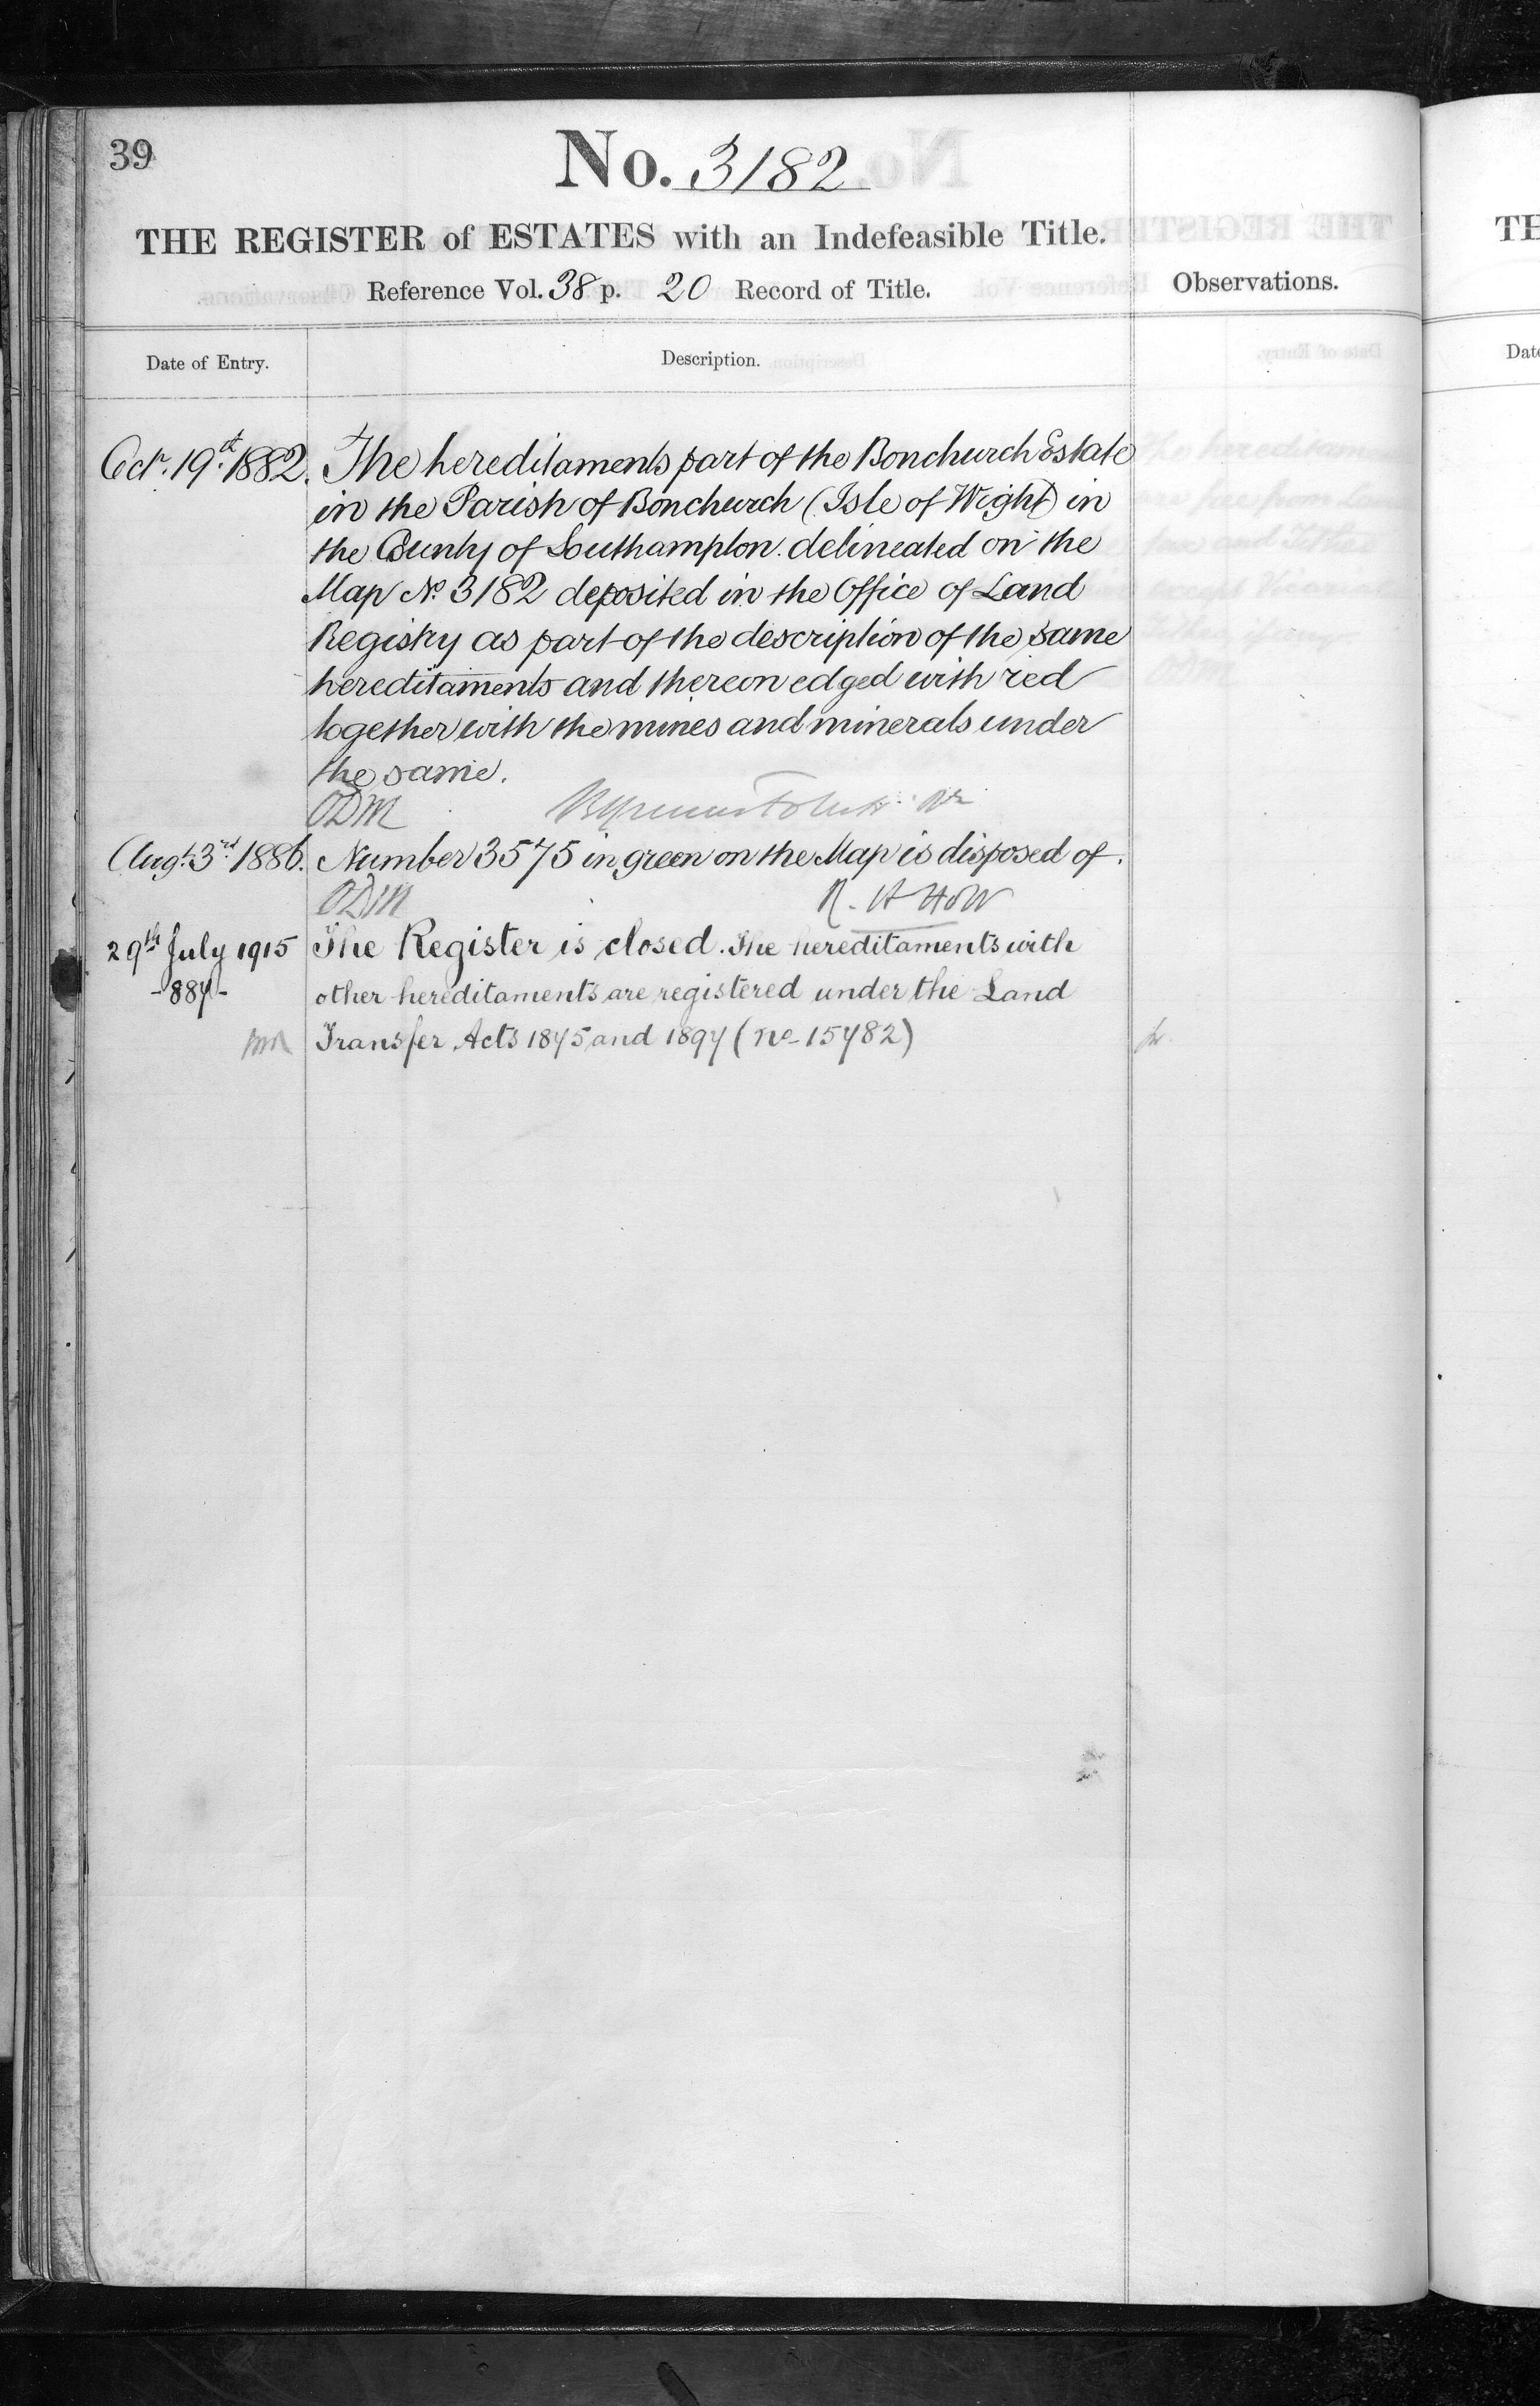 39
No. 3182
THE REGISTER of ESTATES with an Indefeasible Title.
Reference Vol. 38 p. 20 Record of Title.
Observations.
Date of Entry.
Description.
Octr. 19th. 1882.
The hereditaments part of the Bonchurch Estate
in the Parish of Bonchurch (Isle of Wight) in
the County of Southampton. delineated on the
Map No. 3182 deposited in the Office of Land
Registry as part of the description of the same
hereditaments and thereon edged with red
together with the mines and minerals under
the same.
ODM
Augt. 3rd. 1886.
Number 3575 in green on the Map is disposed of.
ODM
R. H HoW
29th July 1915
The Register is closed. The hereditaments with
-887-
other hereditaments are registered under the Land
Transfer Acts 1875 and 1897 (no- 15782)
TH
Date